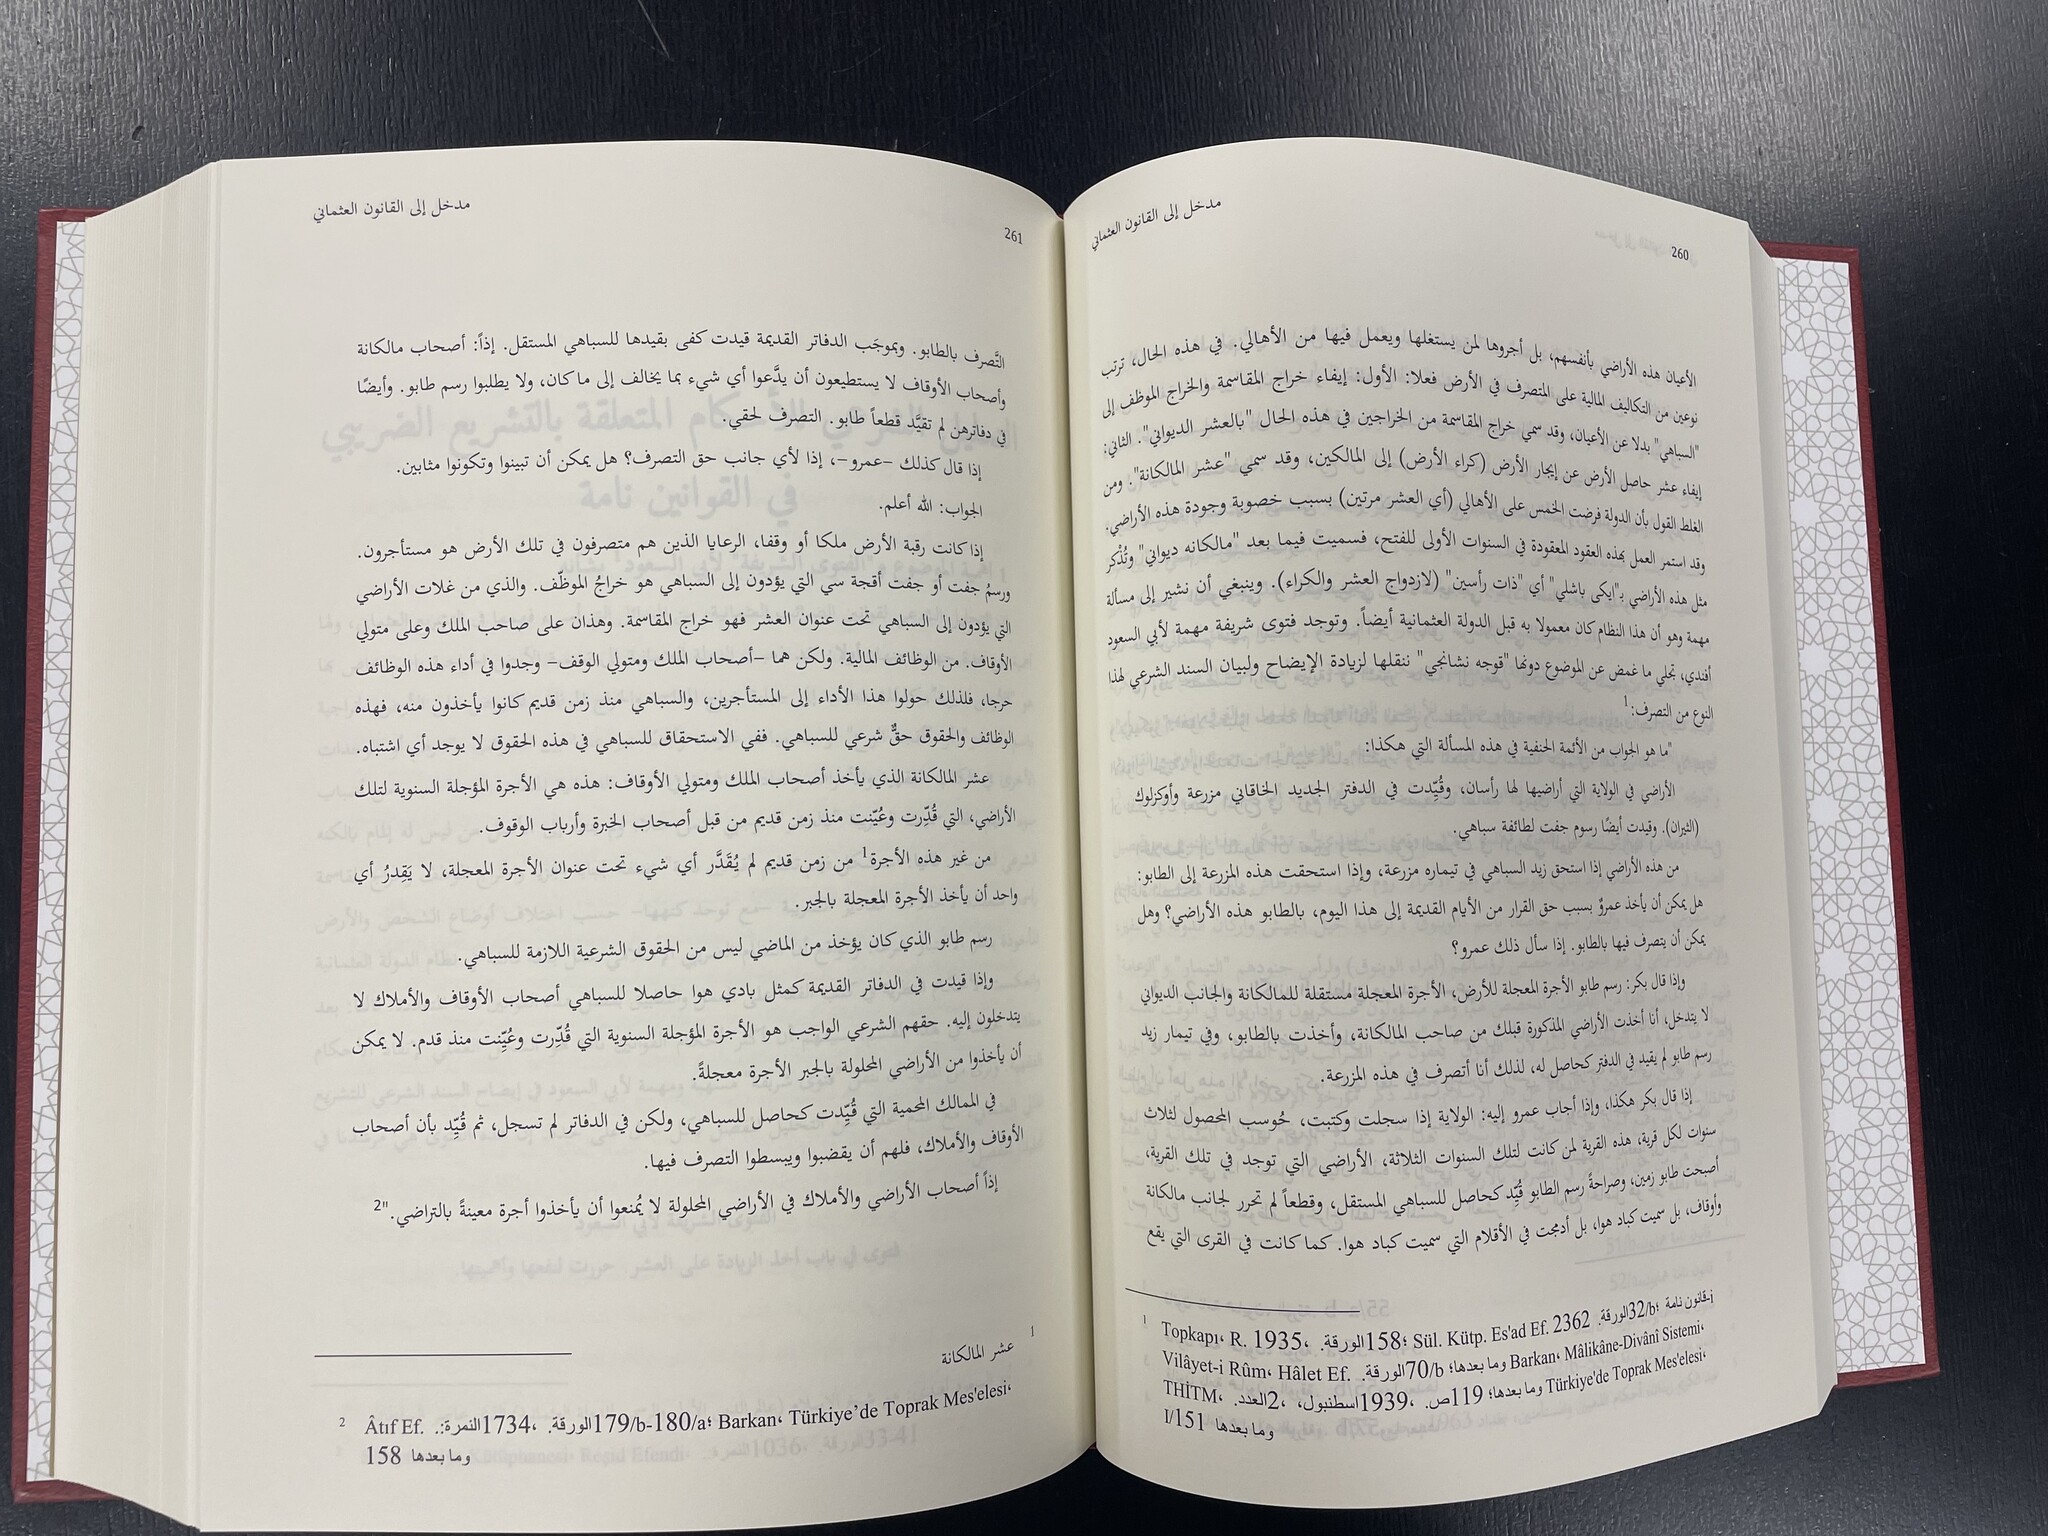 مدخل إلى القانون العثماني
260
الأعيان هذه الأراضي بأنفسهم، بل أجروها لمن يستغلها ويعمل فيها من الأهالي. في هذه الحال، ترتب
نوعين من التكاليف المالية على المتصرف في الأرض فعلا: الأول: إيفاء خراج المقاسمة والخراج الموظف إلى
"السباهي" بدلا عن الأعيان، وقد سمي خراج المقاسمة من الخراجين في هذه الحال "بالعشر الديواني". الثاني:
إيفاء عشر حاصل الأرض عن إيجار الأرض (كراء الأرض) إلى المالكين، وقد سمي "عشر المالكانة". ومن
الغلط القول بأن الدولة فرضت الخمس على الأهالي (أي العشر مرتين) بسبب خصوبة وجودة هذه الأراضي.
وقد استمر العمل بهذه العقود المعقودة في السنوات الأولى للفتح، فسميت فيما بعد "مالكانه ديواني" وتُذْكر
مثل هذه الأراضي بـ"ايكى باشلي" أي "ذات رأسين" (لازدواج العشر والكراء). وينبغي أن نشير إلى مسألة
مهمة وهو أن هذا النظام كان معمولا به قبل الدولة العثمانية أيضاً. وتوجد فتوى شريفة مهمة لأبي السعود
أفندي، تجلي ما غمض عن الموضوع دونها "قوجه نشانجي" ننقلها لزيادة الإيضاح ولبيان السند الشرعي لهذا
النوع من التصرف:1
"ما هو الجواب من الأئمة الحنفية في هذه المسألة التي هكذا:
الأراضي في الولاية التي أراضيها لها رأسان، وقُيِّدت في الدفتر الجديد الخاقاني مزرعة وأوكزلوك
(الثيران). وقيدت أيضًا رسوم جفت لطائفة سباهي.
من هذه الأراضي إذا استحق زيد السباهي في تيماره مزرعة، وإذا استحقت هذه المزرعة إلى الطابو:
هل يمكن أن يأخذ عمروٌ بسبب حق القرار من الأيام القديمة إلى هذا اليوم، بالطابو هذه الأراضي؟ وهل
يمكن أن يتصرف فيها بالطابو. إذا سأل ذلك عمرو؟
وإذا قال بكر: رسم طابو الأجرة المعجلة للأرض، الأجرة المعجلة مستقلة للمالكانة والجانب الديواني
لا يتدخل، أنا أخذت الأراضي المذكورة قبلك من صاحب المالكانة، وأخذت بالطابو، وفي تيمار زيد
رسم طابو لم يقيد في الدفتر كحاصل له، لذلك أنا أتصرف في هذه المزرعة.
إذا قال بكر هكذا، وإذا أجاب عمرو إليه: الولاية إذا سجلت وكتبت، حُوسب المحصول لثلاث
سنوات لكل قرية، هذه القرية لمن كانت لتلك السنوات الثلاثة، الأراضي التي توجد في تلك القرية،
أصبحت طابو زمين، وصراحةً رسم الطابو قُيِّد كحاصل للسباهي المستقل، وقطعاً لم تحرر لجانب مالكانة
وأوقاف، بل سميت كباد هوا، بل أدمجت في الأقلام التي سميت كباد هوا. كما كانت في القرى التي يقع
1 Topkapı، R. 1935، الورقة. 158؛ Sül. Kütp. Es'ad Ef. 2362 الورقة. 32/b؛ قانون نامة-i
Vilâyet-i Rûm، Hâlet Ef. الورقة. 70/b وما بعدها؛ Barkan، Mâlikâne-Divânî Sistemi،
THİTM، العدد. 2، اسطنبول، 1939، ص. 119 وما بعدها؛ Türkiye'de Toprak Mes'elesi،
I/151 وما بعدها
مدخل إلى القانون العثماني
261
التَّصرف بالطابو. وبموجَب الدفاتر القديمة قيدت كفى بقيدها للسباهي المستقل. إذاً: أصحاب مالكانة
وأصحاب الأوقاف لا يستطيعون أن يدَّعوا أي شيء بما يخالف إلى ما كان، ولا يطلبوا رسم طابو. وأيضًا
في دفاترهن لم تقيَّد قطعاً طابو. التصرف لحقي.
إذا قال كذلك -عمرو-، إذا لأي جانب حق التصرف؟ هل يمكن أن تبينوا وتكونوا مثابين.
الجواب: الله أعلم.
إذا كانت رقبة الأرض ملكا أو وقفا، الرعايا الذين هم متصرفون في تلك الأرض هو مستأجرون.
ورسمُ جفت أو جفت أقجة سي التي يؤدون إلى السباهي هو خراجُ الموظّف. والذي من غلات الأراضي
التي يؤدون إلى السباهي تحت عنوان العشر فهو خراج المقاسمة. وهذان على صاحب الملك وعلى متولي
الأوقاف. من الوظائف المالية. ولكن هما -أصحاب الملك ومتولي الوقف- وجدوا في أداء هذه الوظائف
حرجا، فلذلك حولوا هذا الأداء إلى المستأجرين، والسباهي منذ زمن قديم كانوا يأخذون منه، فهذه
الوظائف والحقوق حقٌّ شرعي للسباهي. ففي الاستحقاق للسباهي في هذه الحقوق لا يوجد أي اشتباه.
عشر المالكانة الذي يأخذ أصحاب الملك ومتولي الأوقاف: هذه هي الأجرة المؤجلة السنوية لتلك
الأراضي، التي قُدِّرت وعُيّنت منذ زمن قديم من قبل أصحاب الخبرة وأرباب الوقوف.
من غير هذه الأجرة1 من زمن قديم لم يُقَدَّر أي شيء تحت عنوان الأجرة المعجلة، لا يَقِدرُ أي
واحد أن يأخذ الأجرة المعجلة بالجبر.
رسم طابو الذي كان يؤخذ من الماضي ليس من الحقوق الشرعية اللازمة للسباهي.
وإذا قيدت في الدفاتر القديمة كمثل بادي هوا حاصلا للسباهي أصحاب الأوقاف والأملاك لا
يتدخلون إليه. حقهم الشرعي الواجب هو الأجرة المؤجلة السنوية التي قُدِّرت وعُيِّنت منذ قدم. لا يمكن
أن يأخذوا من الأراضي المحلولة بالجبر الأجرة معجلةً.
في الممالك المحمية التي قُيِّدت كحاصل للسباهي، ولكن في الدفاتر لم تسجل، ثم قُيِّد بأن أصحاب
الأوقاف والأملاك، فلهم أن يقضبوا ويبسطوا التصرف فيها.
إذاً أصحاب الأراضي والأملاك في الأراضي المحلولة لا يُمنعوا أن يأخذوا أجرة معينةً بالتراضي."2
1 عشر المالكانة
2 Âtıf Ef. النمرة:. 1734، الورقة. 179/b-180/a؛ Barkan، Türkiye'de Toprak Mes'elesi،
158 وما بعدها